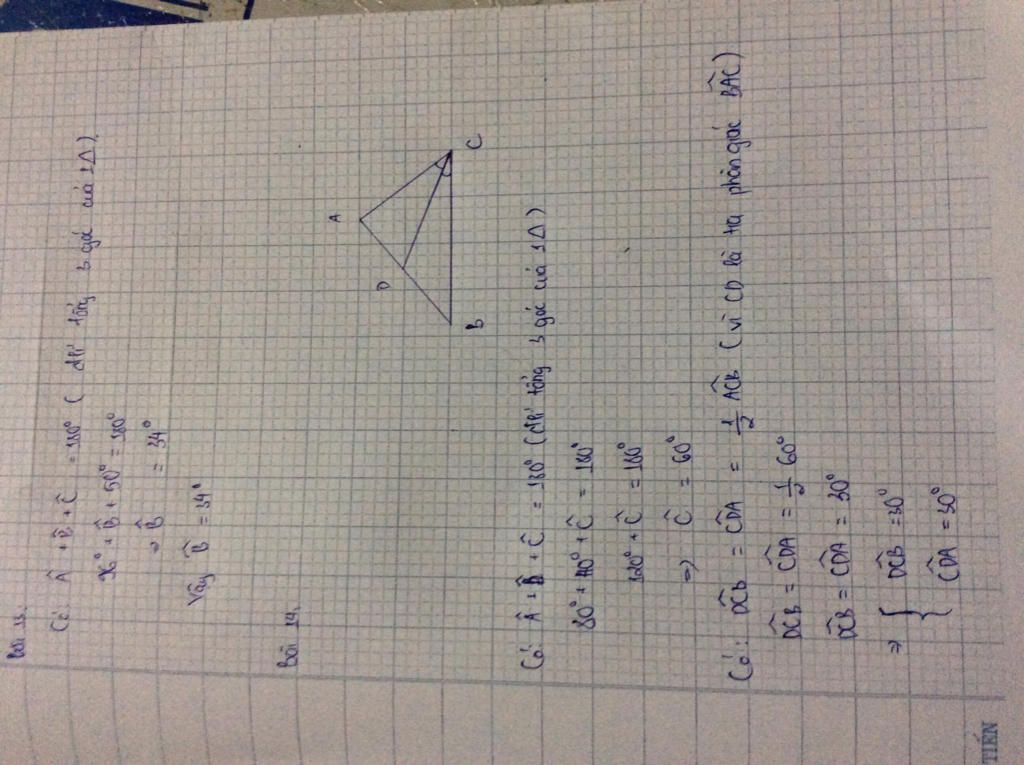 Bài 13.
Có: Â + B̂ + Ĉ = 180° ( đlí tổng 3 góc của 1Δ ).
96° + B̂ + 50° = 180°
⇒ B̂ = 34°
Vậy B̂ = 34°
Bài 14.
A
D
B
C
Có: Â + B̂ + Ĉ = 180° (đlí tổng 3 góc của 1Δ)
80° + 40° + Ĉ = 180°
120° + Ĉ = 180°
⇒ Ĉ = 60°
Có: DĈB = CD̂A = 1/2 AĈB (vì CD là tia phân giác BÂC)
DĈB = CD̂A = 1/2 60°
DĈB = CD̂A = 30°
⇒ { DĈB = 30°
CD̂A = 30°
TIẾN